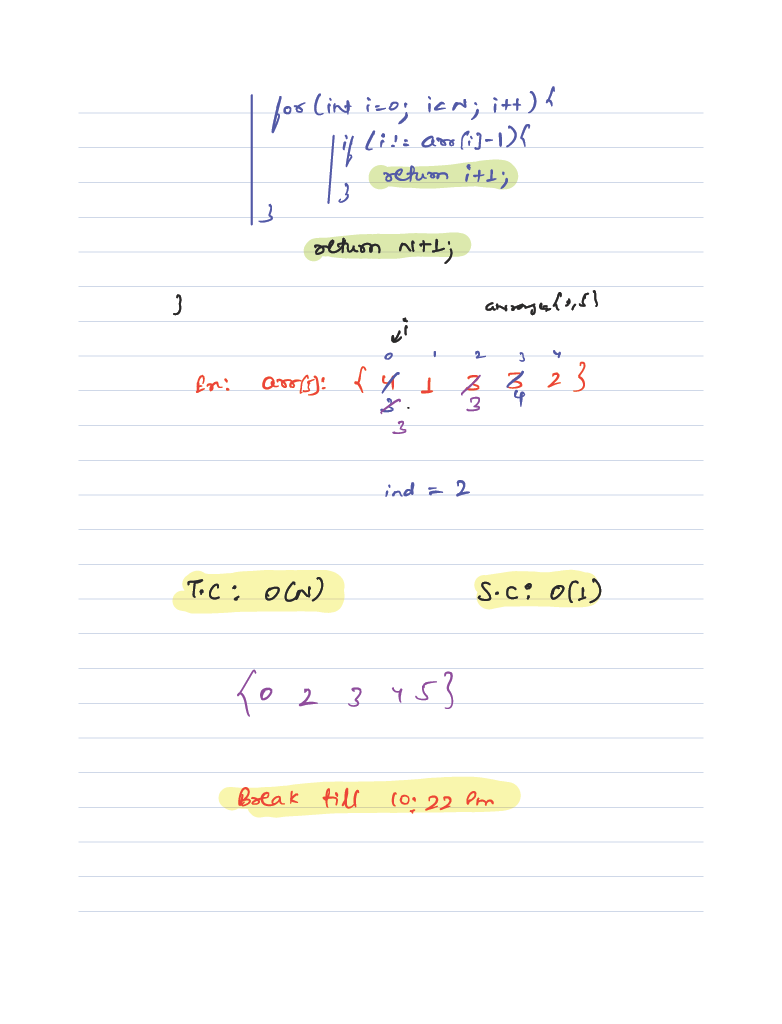 for (int i=0; i<N; i++) {
if (i != arr[i]-1) {
return i+1;
}
}
return N+1;
}
i
0 1 2 3 4
En: arr[5]: { 4 1 3 3 2 }
3 3 4
3
ind = 2
T.C: O(N) S.C: O(1)
{0 2 3 4 5}
Break till 10:22 Pm